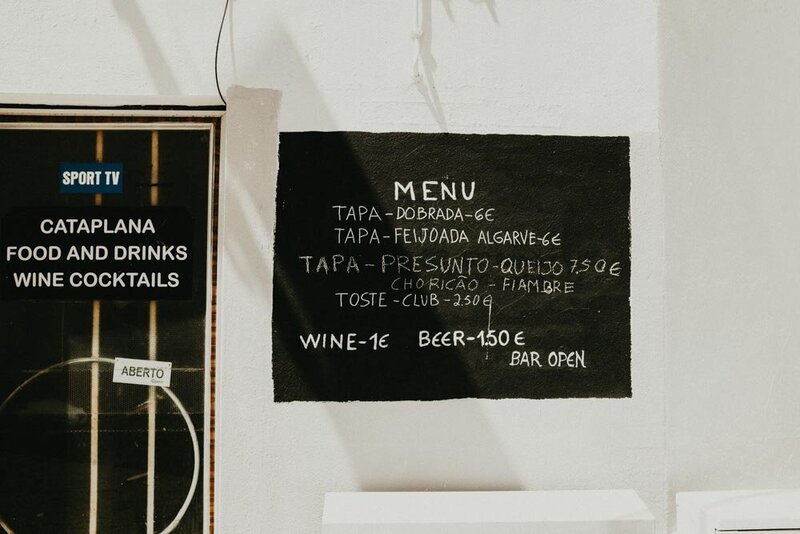 SPORT TV
CATAPLANA
FOOD AND DRINKS
WINE COCKTAILS
ABERTO
MENU
TAPA-DOBRADA-6€
TAPA-FEIJOADA ALGARVE-6€
TAPA-PRESUNTO-QUEIJO 7,50€
CHORICÃO - FIAMBRE
TOSTE-CLUB-2.50€
WINE-1€ BEER-1.50€
BAR OPEN